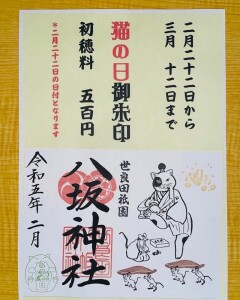 二月二十二日から
三月 十二日まで
猫の日御朱印
初穂料 五百円
＊二月二十二日の日付となります
世良田祇園
八坂神社
令和五年二月